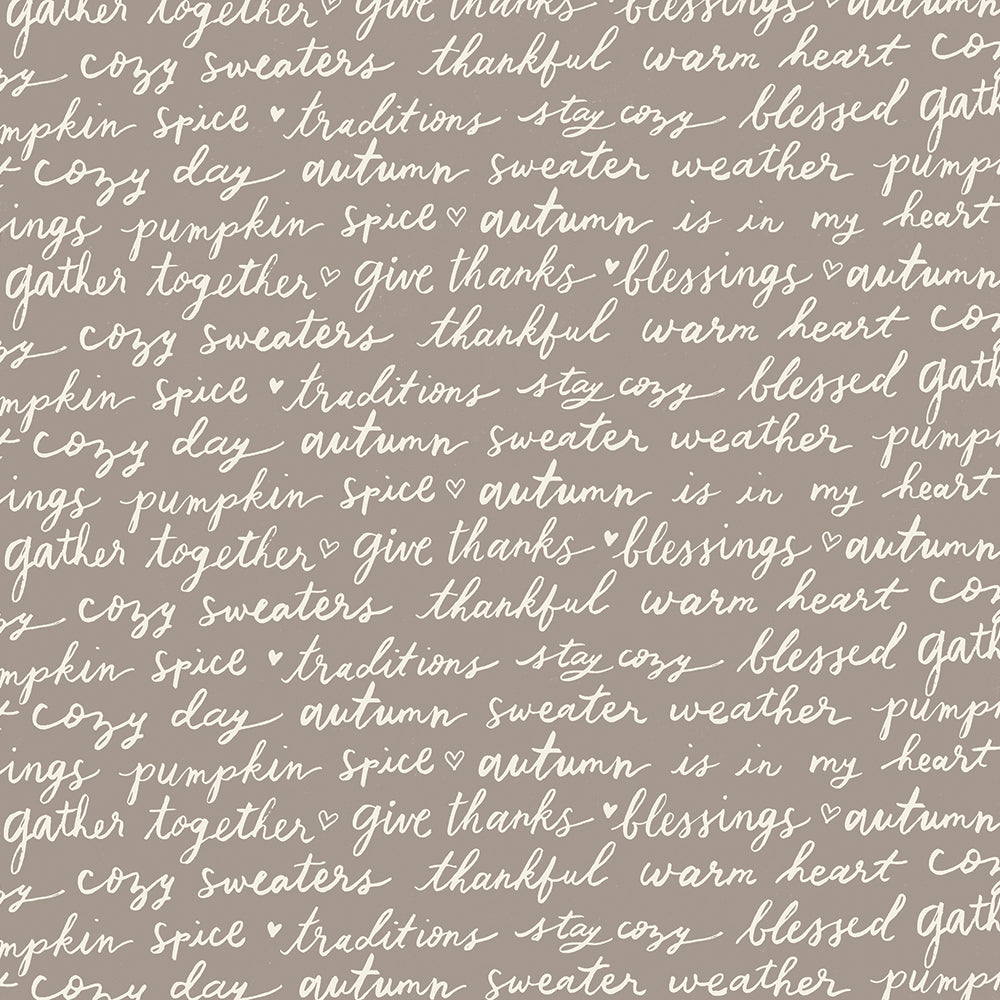 gather together give thanks blessings autumn
zy cozy sweaters thankful warm heart co
mpkin spice traditions stay cozy blessed gath
t cozy day autumn sweater weather pump
ings pumpkin spice autumn is in my heart
gather together give thanks blessings autumn
zy cozy sweaters thankful warm heart coz
mpkin spice traditions stay cozy blessed gath
t cozy day autumn sweater weather pump
ings pumpkin spice autumn is in my heart
gather together give thanks blessings autumn
zy cozy sweaters thankful warm heart coz
mpkin spice traditions stay cozy blessed gath
t cozy day autumn sweater weather pump
ings pumpkin spice autumn is in my heart
gather together give thanks blessings autumn
zy cozy sweaters thankful warm heart coz
mpkin spice traditions stay cozy blessed gath
t cozy day autumn sweater weather pump